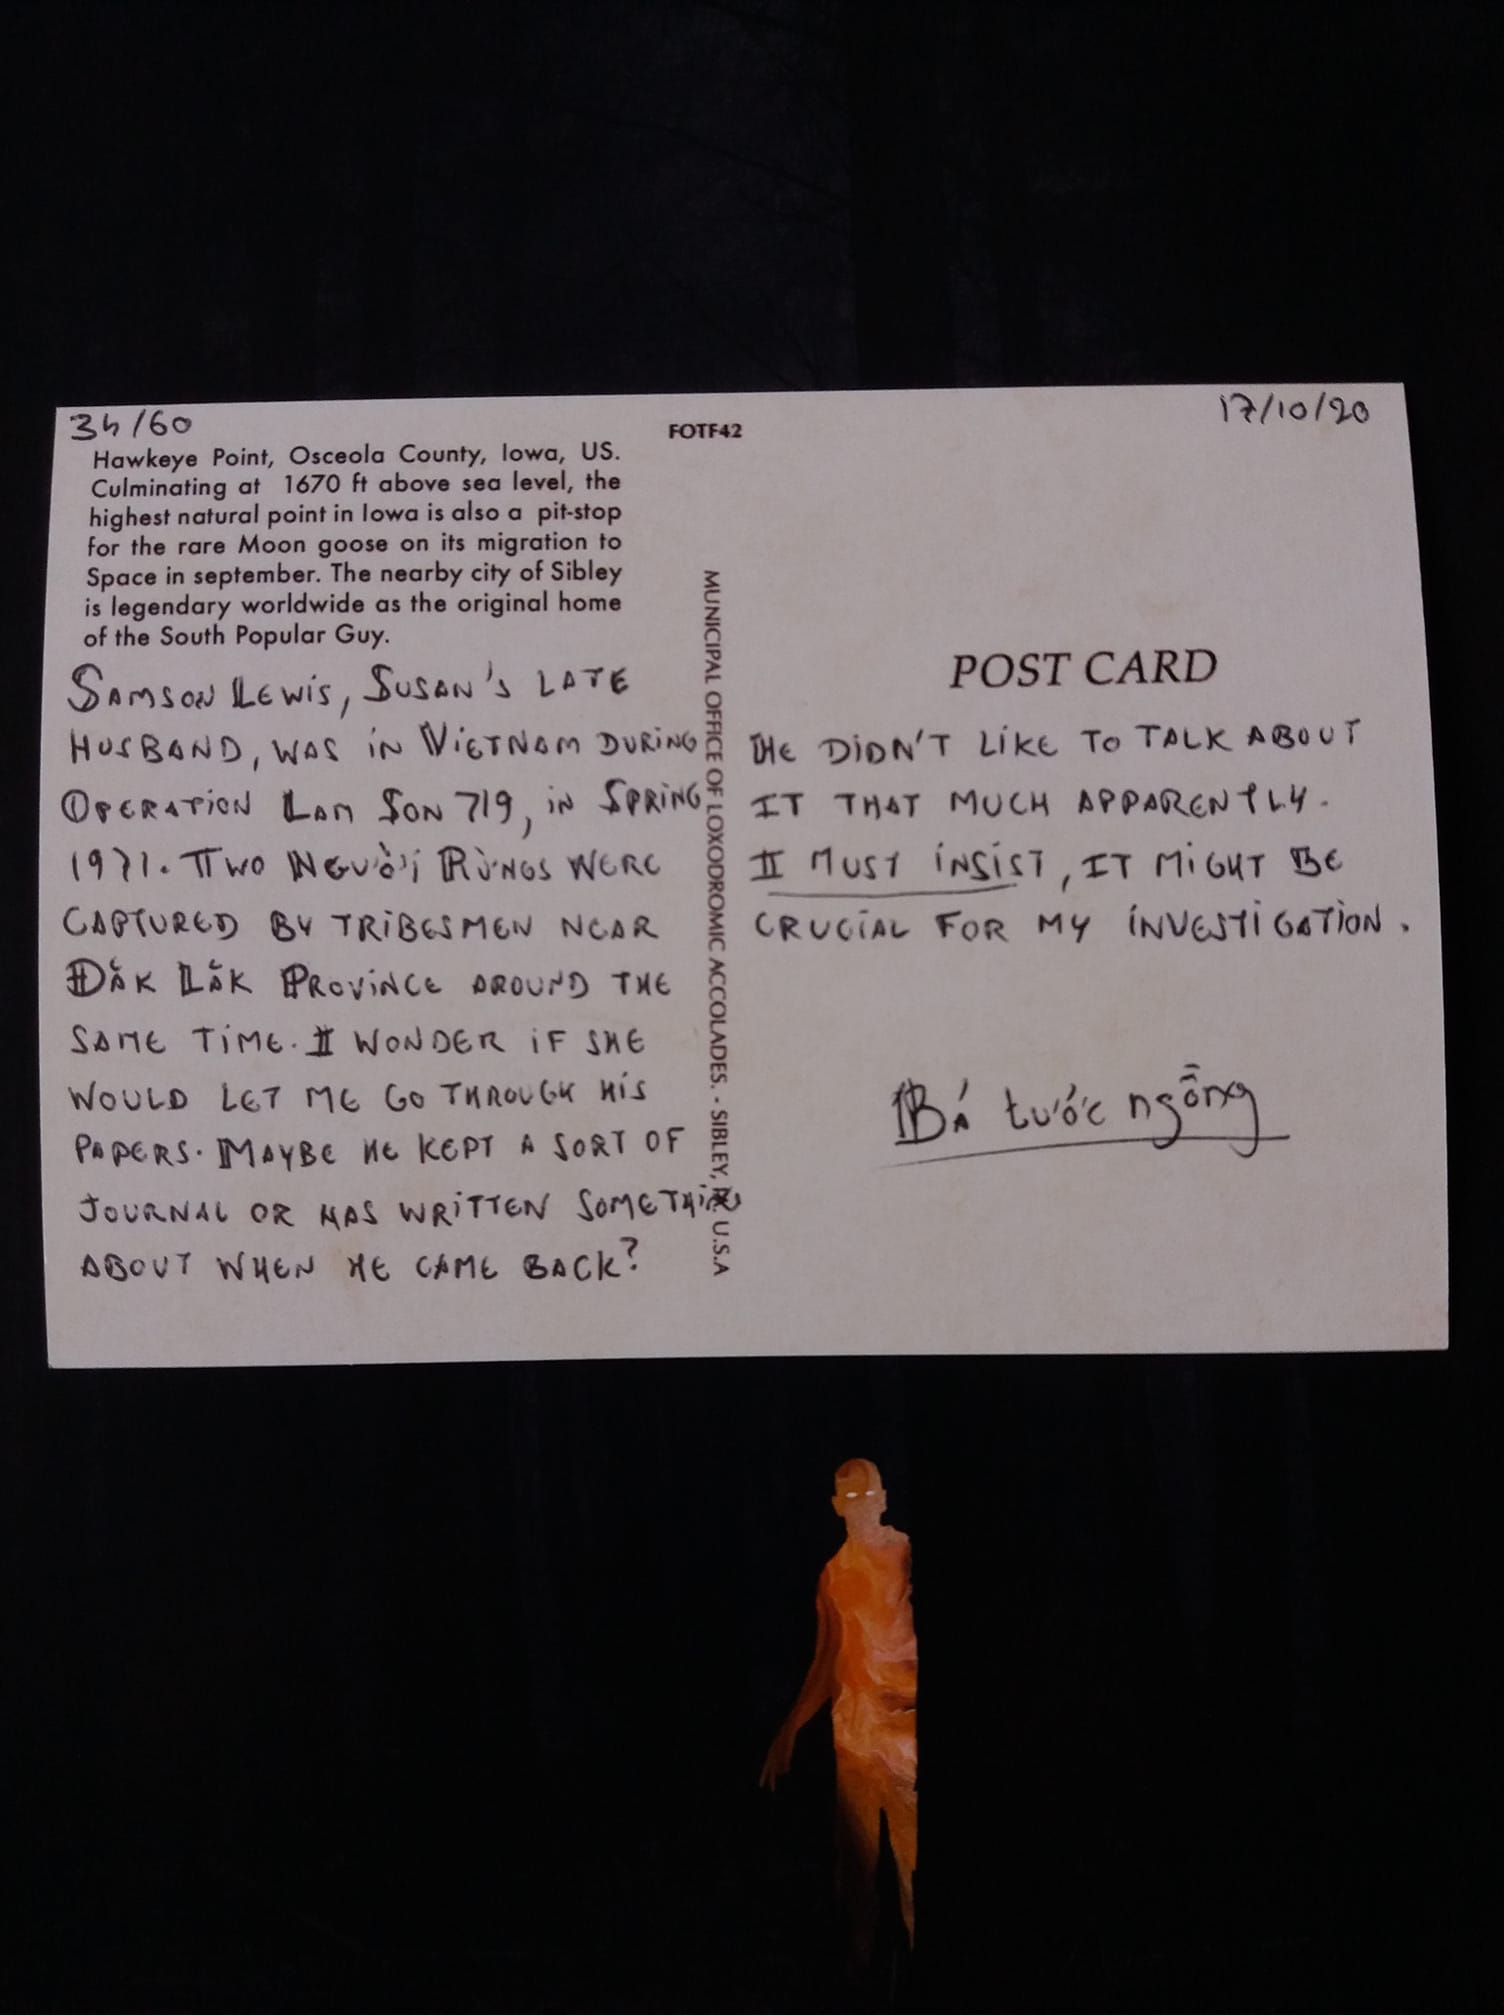 34/60
FOTF42
17/10/20
Hawkeye Point, Osceola County, Iowa, US.
Culminating at 1670 ft above sea level, the
highest natural point in Iowa is also a pit-stop
for the rare Moon goose on its migration to
Space in september. The nearby city of Sibley
is legendary worldwide as the original home
of the South Popular Guy.
SAMSON LEWIS, SUSAN'S LATE
HUSBAND, WAS IN VIETNAM DURING
OPERATION LAM SON 719, IN SPRING
1971. TWO NGƯỜI RỪNGS WERE
CAPTURED BY TRIBESMEN NEAR
ĐĂK LĂK PROVINCE AROUND THE
SAME TIME. I WONDER IF SHE
WOULD LET ME GO THROUGH HIS
PAPERS. MAYBE HE KEPT A SORT OF
JOURNAL OR HAS WRITTEN SOMETHING
ABOUT WHEN HE CAME BACK?
MUNICIPAL OFFICE OF LOXODROMIC ACCOLADES. - SIBLEY, U.S.A
POST CARD
HE DIDN'T LIKE TO TALK ABOUT
IT THAT MUCH APPARENTLY.
I MUST INSIST, IT MIGHT BE
CRUCIAL FOR MY INVESTIGATION.
Bá tước ngỗng